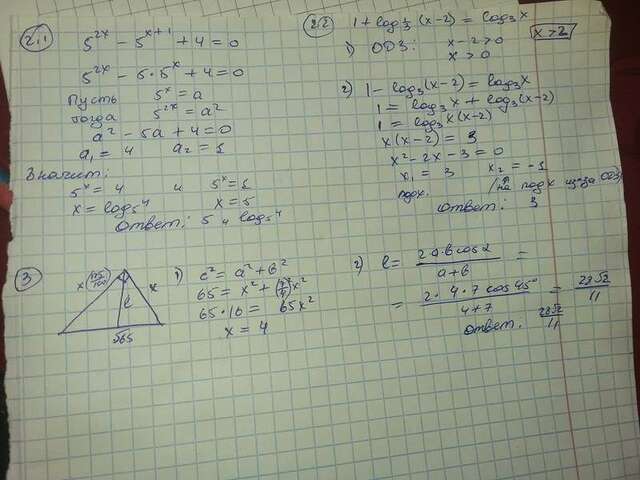 2.1
5^{2x} - 5^{x+1} + 4 = 0
5^{2x} - 5·5^x + 4 = 0
Пусть 5^x = a
тогда 5^{2x} = a^2
a^2 - 5a + 4 = 0
a_1 = 4 a_2 = 1
Значит:
5^x = 4 и 5^x = 1
x = log_5 4 x = 5
Ответ: 5 и log_5 4
2.2
1 + log_{1/3} (x-2) = log_3 x
1) ОДЗ: x-2>0
x>0
x>2
2) 1 - log_3 (x-2) = log_3 x
1 = log_3 x + log_3 (x-2)
1 = log_3 x(x-2)
x(x-2) = 3
x^2 - 2x - 3 = 0
x_1 = 3 x_2 = -1
подх. (не подх из за ОДЗ)
Ответ: 3
3
x
x
l
√65
1) c^2 = a^2 + b^2
65·16 = 65x^2
x = 4
2) l = 2a·b cos α / a+b =
= 2·4·7 cos 45° / 4+7 = 28√2 / 11
Ответ: 28√2 / 11